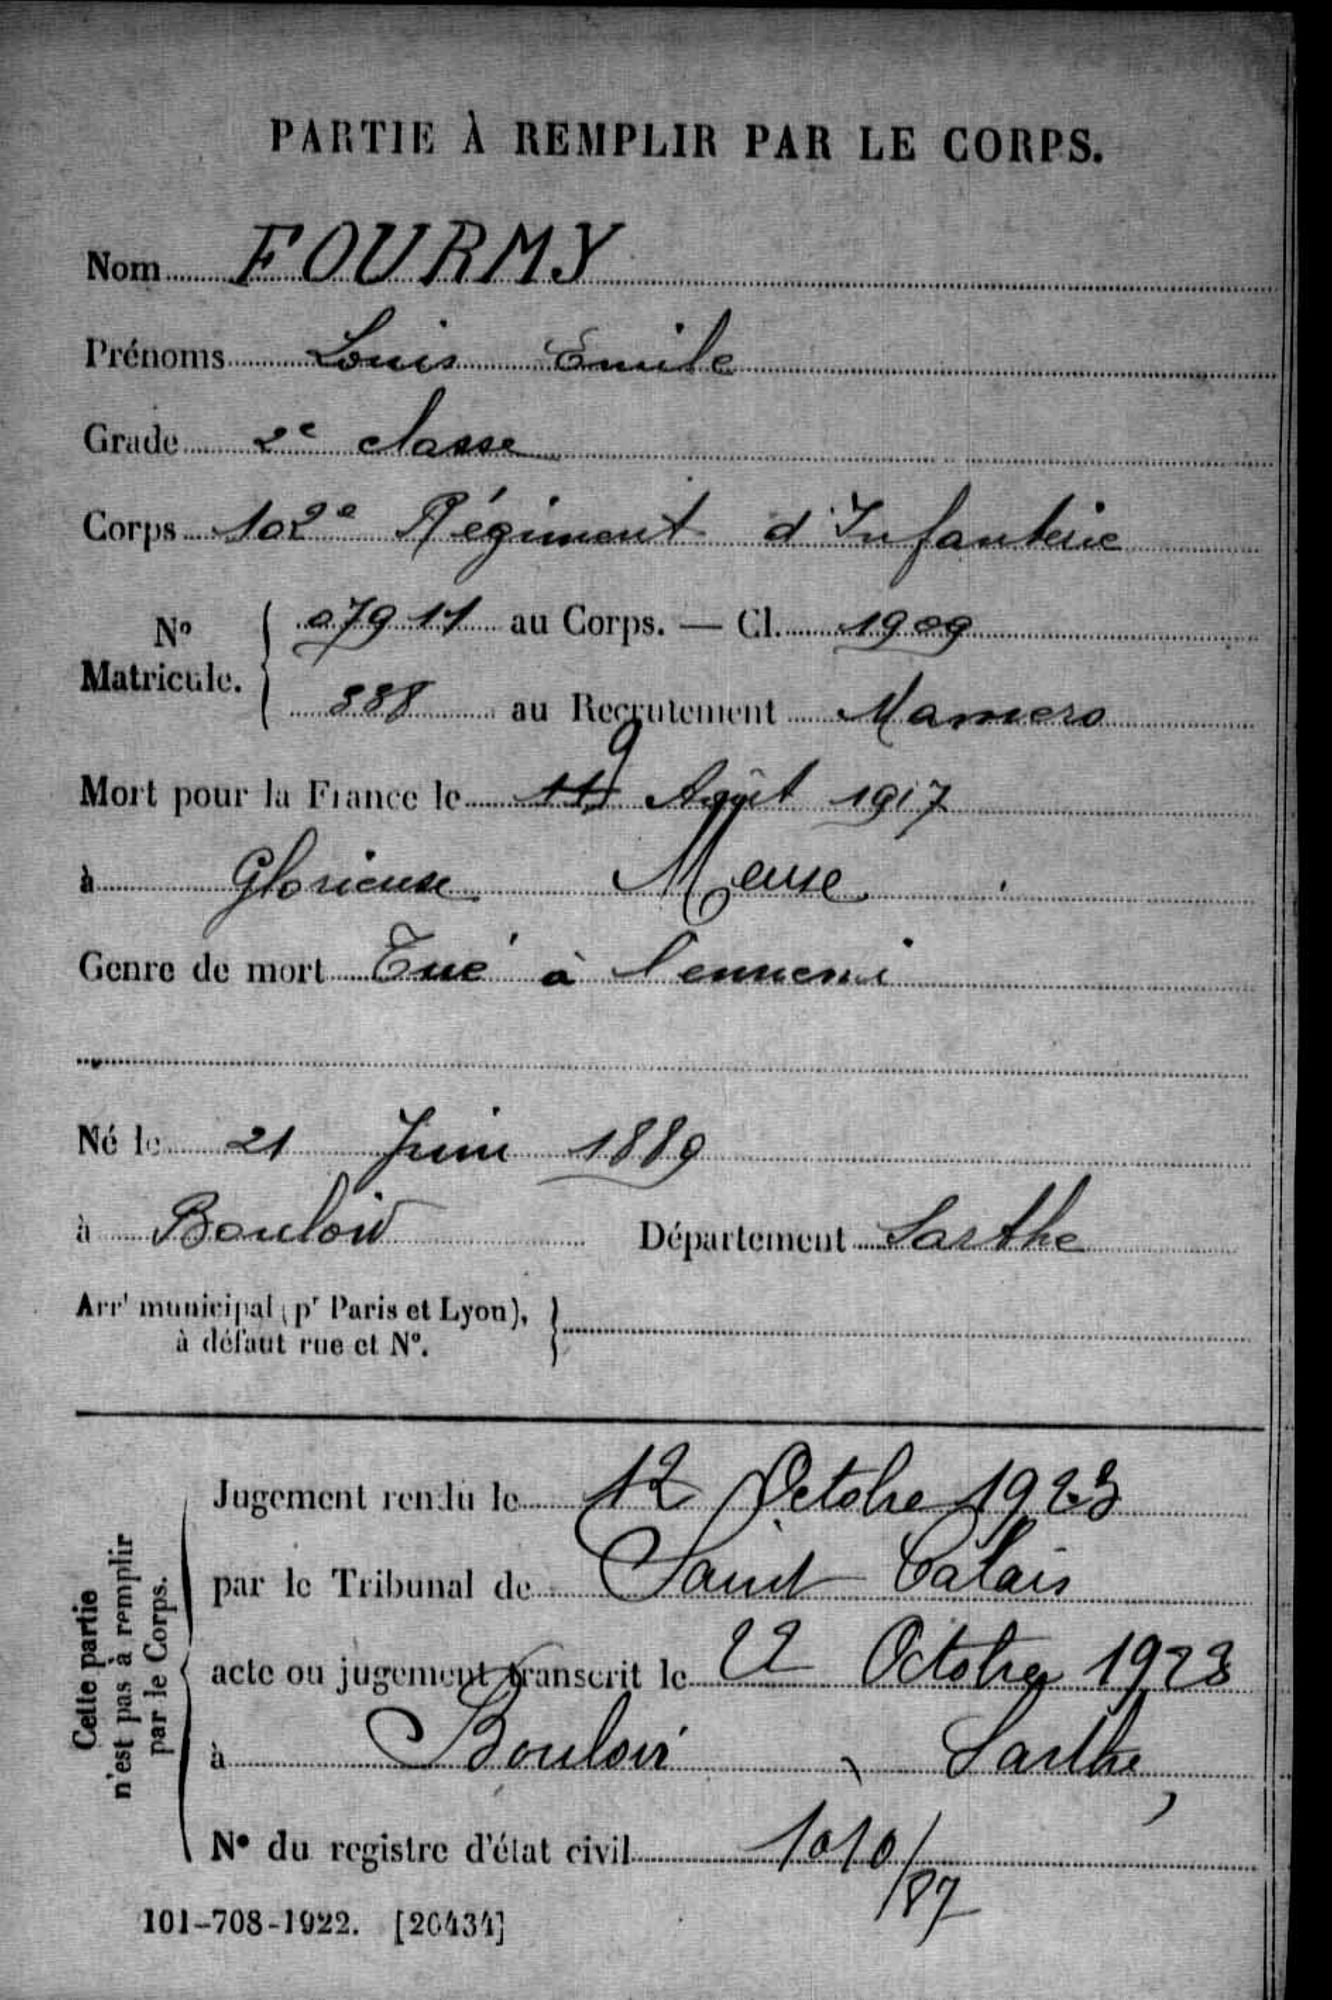 PARTIE À REMPLIR PAR LE CORPS.
Nom FOURMY
Prénoms Louis Emile
Grade 2e classe
Corps 102e Régiment d'Infanterie
No Matricule. 07911 au Corps. — Cl. 1909
888 au Recrutement Mamers
Mort pour la France le 9 Août 1917
à Glorieuse Meuse
Genre de mort Tué à l'ennemi
Né le 21 Juin 1889
à Bouloir Département Sarthe
Arrt municipal (pr Paris et Lyon),
à défaut rue et N°.
Cette partie
n'est pas à remplir
par le Corps.
Jugement rendu le 12 Octobre 1923
par le Tribunal de Saint Calais
acte ou jugement transcrit le 22 Octobre 1923
à Bouloir, Sarthe,
N° du registre d'état civil 1010/87
101-708-1922. [26434]